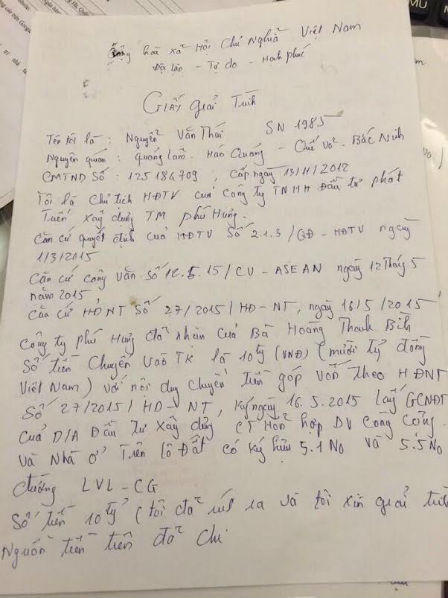 Cộng hoà xã Hội Chủ Nghĩa Việt Nam
Độc lập - Tự do - Hạnh phúc
Giấy giải Trình
Tên tôi là: Nguyễn Văn Thái SN 1985
Nguyên quán: Quảng Lãm - Hán Quảng - Quế Võ - Bắc Ninh
CMTND Số: 125186709, cấp ngày 13/11/2012
Tôi là Chủ tịch HĐTV của Công ty TNHH Đầu tư phát
Triển xây dựng TM phú Hưng.
Căn cứ quyết định của HĐTV Số 2.1.3/QĐ-HĐTV ngày
1/3/2015
Căn cứ công văn số 12.5.15/CV-ASEAN ngày 12 Tháng 5
năm 2015
Căn cứ HĐNT Số 27/2015/HĐ-NT, ngày 16/5/2015
Công ty phú Hưng đã nhận của Bà Hoàng Thanh Bích
Số tiền Chuyển vào TK là 10 tỷ (VNĐ) (mười tỷ đồng
Việt Nam) với nội dung chuyển tiền góp vốn theo HĐNT
Số 27/2015/HD-NT, ký ngày 16.5.2015 lấy GCNĐT
của D/A Đầu tư xây dựng CT Hỗn hợp DV công cộng
và Nhà ở Trên lô Đất có ký hiệu 5.1 No và 5.5 No
đường LVL-CG
Số tiền 10 tỷ (tôi đã rút ra và tôi xin giải trình
Nguồn tiền trên đã chi